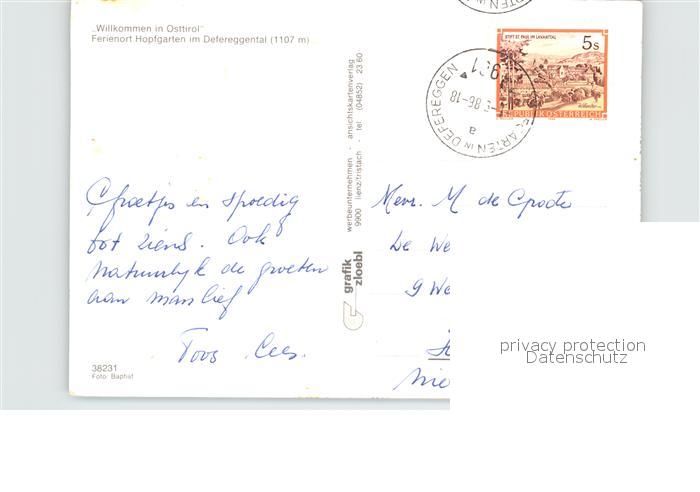 „Willkommen in Osttirol"
Ferienort Hopfgarten im Defereggental (1107 m)
Groetjes en spoedig
tot ziens. Ook
natuurlijk de groeten
aan manlief
Toos Cees.
38231
Foto: Baptist
werbeunternehmen - ansichtskartenverlag
9900 lienz/tristach - tel: (04852) 23 60
grafik
zloebl
STIFT ST. PAUL IM LAVANTTAL
5 s
REPUBLIK ÖSTERREICH
GARTEN IN DEFEREGGEN
86-18
a
Mevr. M de Groote
De We
9 We
privacy protection
Datenschutz